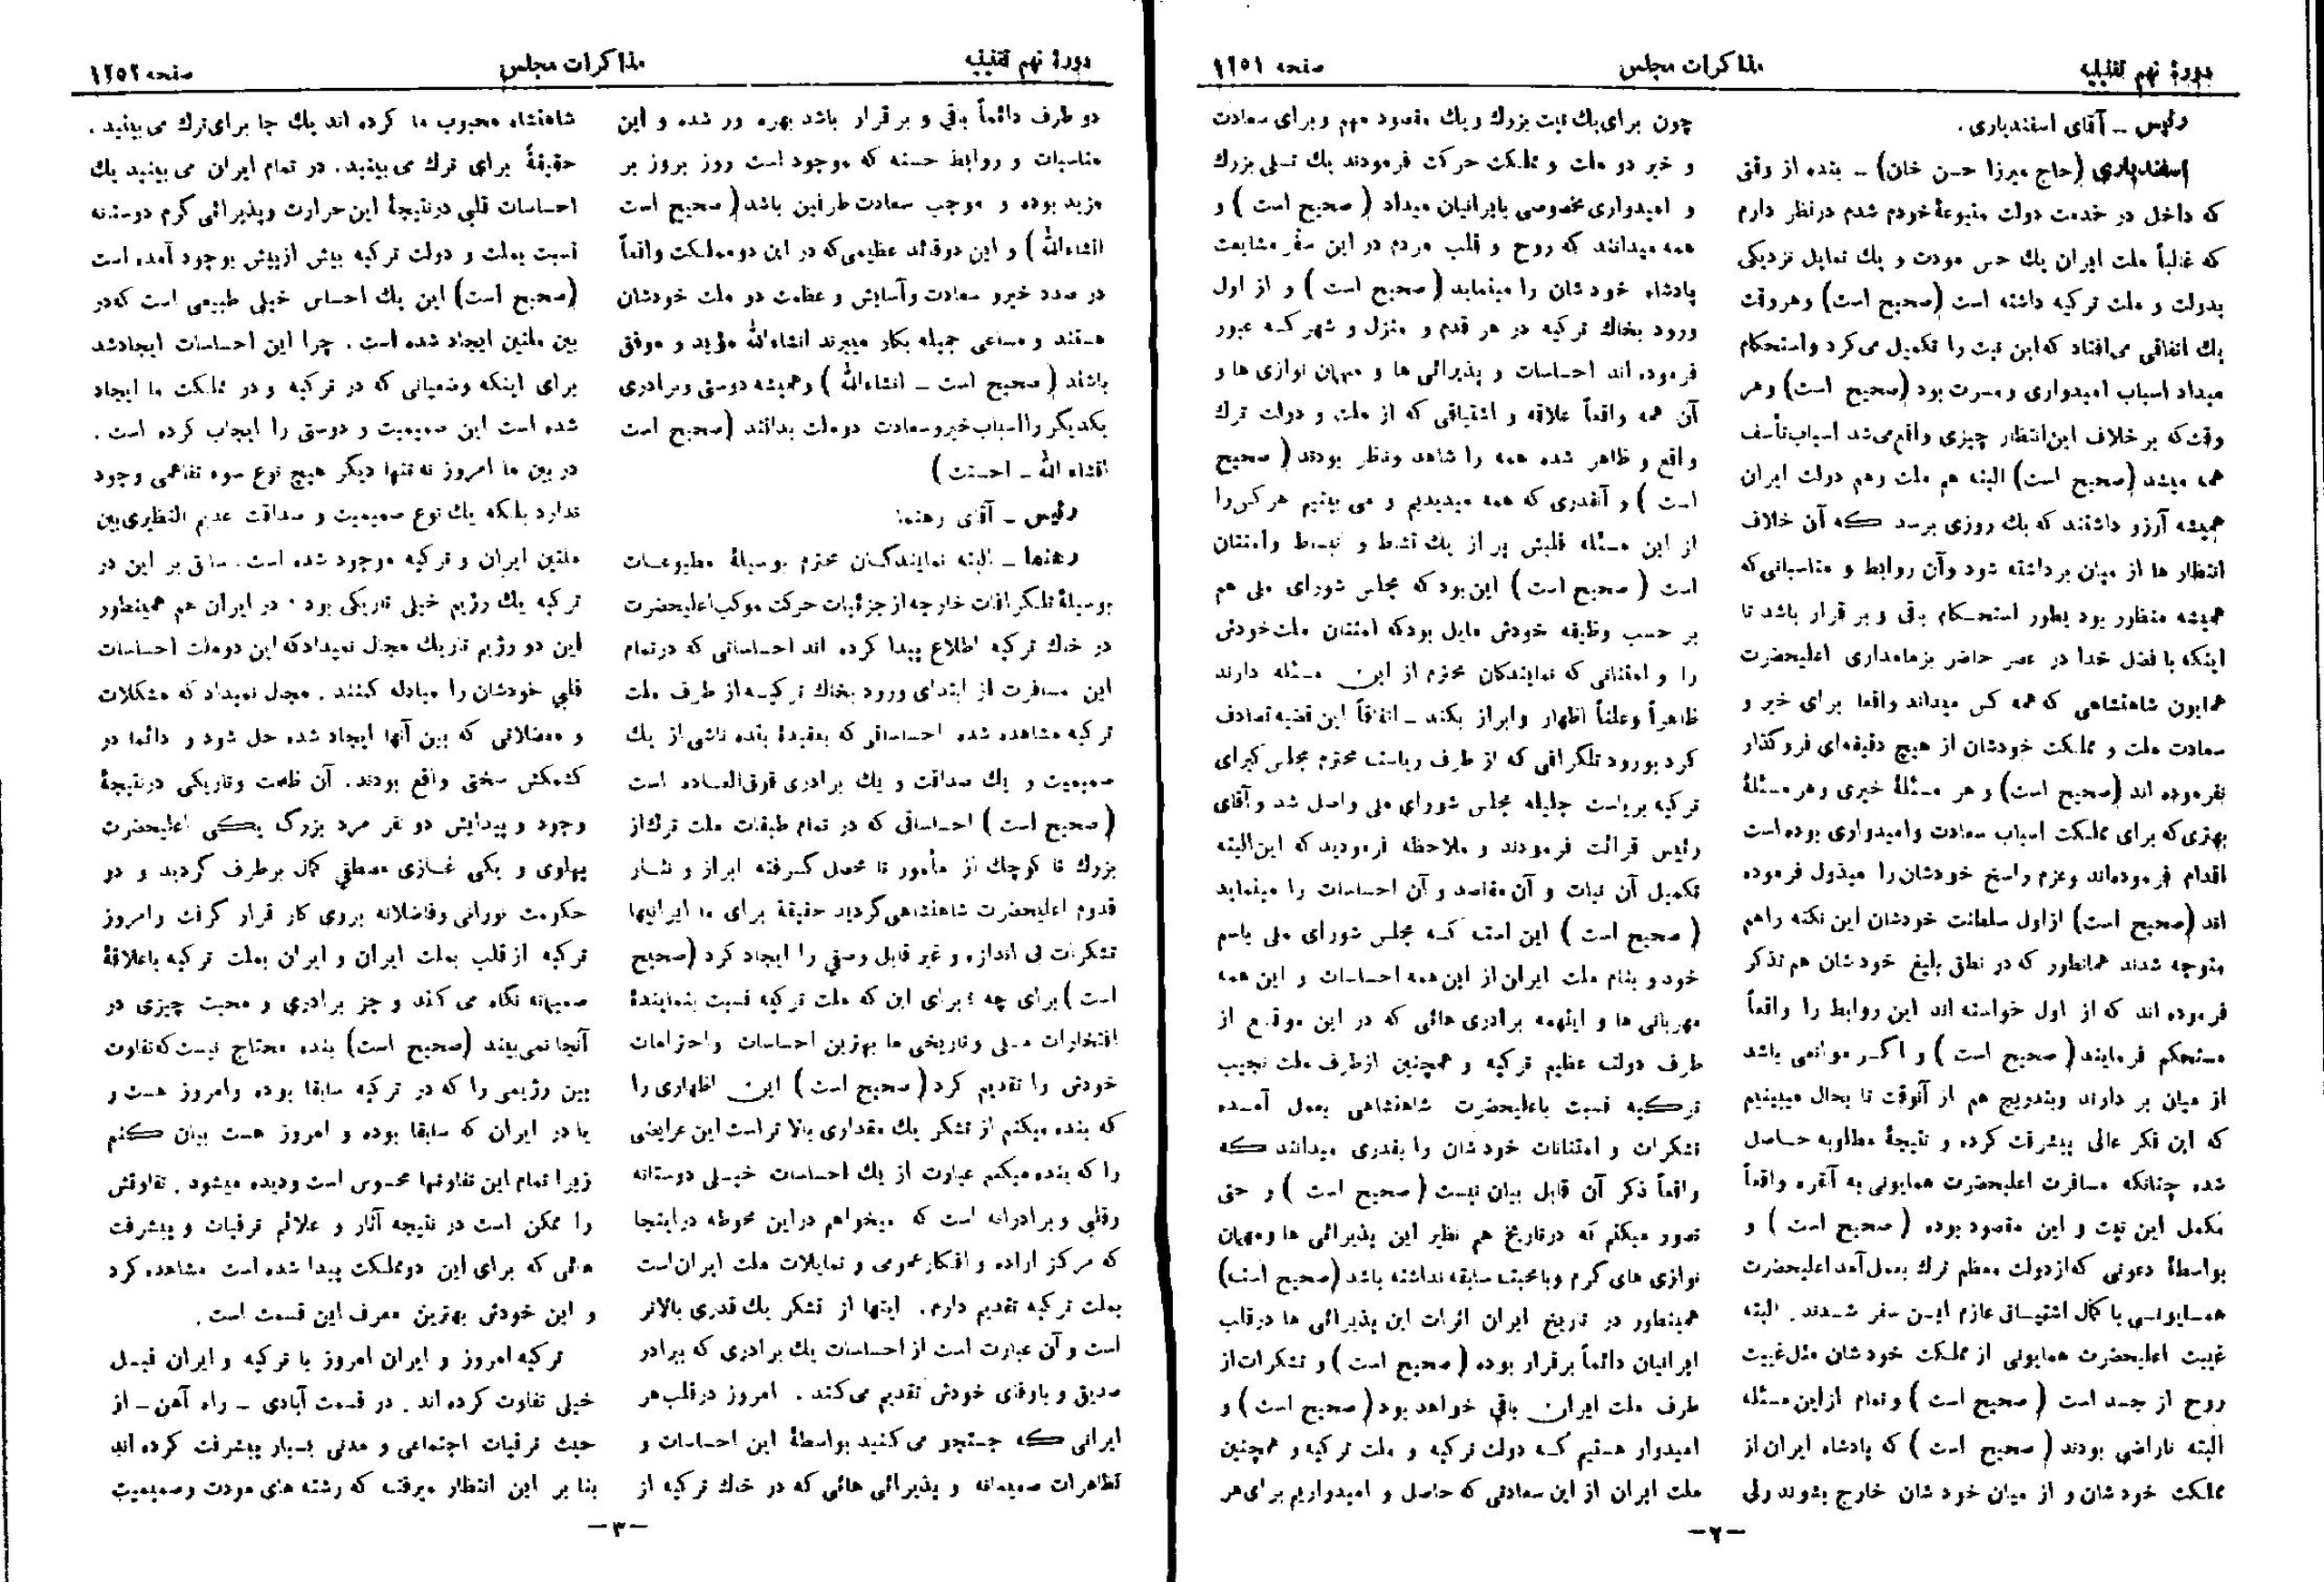 دورهٔ نهم تقنینیه
مذاکرات مجلس
صفحه ۱۲۵۱
رئیس ـ آقای اسفندیاری.
اسفندیاری (حاج میرزا حسن خان) ـ بنده از وقتی
که داخل در خدمت دولت متبوعهٔ خودم شدم در نظر دارم
که غالباً ملت ایران یك حس مودت و یك تمایل نزدیکی
بدولت و ملت ترکیه داشته است (صحیح است) و هروقت
یك اتفاقی می‌افتاد که این نیت را تکمیل می‌کرد و استحکام
میداد اسباب امیدواری و مسرت بود (صحیح است) و هر
وقت که بر خلاف این انتظار چیزی واقع می‌شد اسباب تأسف
همه میشد (صحیح است) البته هم ملت و هم دولت ایران
همیشه آرزو داشتند که یك روزی برسد که آن خلاف
انتظار ها از میان برداشته شود و آن روابط و مناسباتی که
همیشه منظور بود بطور استحکام باقی و بر قرار باشد تا
اینکه با فضل خدا در عصر حاضر بزمامداری اعلیحضرت
همایون شاهنشاهی که همه کس میداند واقعا برای خیر و
سعادت ملت و مملکت خودشان از هیچ دقیقه‌ای فروگذار
نفرموده اند (صحیح است) و هر مسئلهٔ خیری و هر مسئلهٔ
بهتری که برای مملکت اسباب سعادت و امیدواری بوده است
اقدام فرموده‌اند و عزم راسخ خودشان را مبذول فرموده
اند (صحیح است) از اول سلطنت خودشان این نکته را هم
متوجه شدند همانطور که در نطق بلیغ خودشان هم تذکر
فرموده اند که از اول خواسته اند این روابط را واقعاً
مستحکم فرمایند (صحیح است) و اگر موانعی باشد
از میان بر دارند و بتدریج هم از آنوقت تا بحال میبینیم
که این فکر عالی پیشرفت کرده و نتیجهٔ مطلوبه حاصل
شده چنانکه مسافرت اعلیحضرت همایونی به آنقره واقعاً
مکمل این نیت و این مقصود بوده (صحیح است) و
بواسطهٔ دعوتی که از دولت معظم ترك بعمل آمد اعلیحضرت
همایونی با کمال اشتیاق عازم این سفر شدند. البته
غیبت اعلیحضرت همایونی از مملکت خودشان مثل غیبت
روح از جسد است (صحیح است) و تمام از این مسئله
البته ناراضی بودند (صحیح است) که پادشاه ایران از
مملکت خودشان و از میان خودشان خارج بشوند ولی
چون برای یك نیت بزرك و یك مقصود مهم و برای سعادت
و خیر دو ملت و مملکت حرکت فرمودند یك تسلی بزرك
و امیدواری مخصوصی بایرانیان میداد (صحیح است) و
همه میدانند که روح و قلب مردم در این سفر مشایعت
پادشاه خودشان را مینماید (صحیح است) و از اول
ورود بخاك ترکیه در هر قدم و منزل و شهر که عبور
فرموده اند احساسات و پذیرائی ها و میهمان نوازی ها و
آن همه واقعاً علاقه و اشتیاقی که از ملت و دولت ترك
واقع و ظاهر شده همه را شاهد و ناظر بودند (صحیح
است) و آنقدری که همه میدیدیم و می بینیم هر کس را
از این مسئله قلبش پر از یك نشط و نبسط و امتنان
است (صحیح است) این بود که مجلس شورای ملی هم
بر حسب وظیفه خودش مایل بود که امتنان ملت خودش
را و امتنانی که نمایندگان محترم از این مسئله دارند
ظاهراً و علناً اظهار و ابراز بکند ـ اتفاقاً این قضیه تصادف
کرد بورود تلگرافی که از طرف ریاست محترم مجلس کبرای
ترکیه بریاست جلیله مجلس شورای ملی واصل شد و آقای
رئیس قرائت فرمودند و ملاحظه فرمودید که این البته
تکمیل آن نیات و آن مقاصد و آن احساسات را مینماید
(صحیح است) این است که مجلس شورای ملی باسم
خود و بنام ملت ایران از این همه احساسات و این همه
مهربانی ها و اینهمه برادری هائی که در این موقع از
طرف دولت عظیم ترکیه و همچنین از طرف ملت نجیب
ترکیه نسبت باعلیحضرت شاهنشاهی بعمل آمده
تشکرات و امتنانات خودشان را بقدری میدانند که
واقعاً ذکر آن قابل بیان نیست (صحیح است) و حتی
تصور میکنم که در تاریخ هم نظیر این پذیرائی ها و میهمان
نوازی های گرم و با محبت سابقه نداشته باشد (صحیح است)
همینطور در تاریخ ایران اثرات این پذیرائی ها در قلب
ایرانیان دائماً برقرار بوده (صحیح است) و تشکرات از
طرف ملت ایران باقی خواهد بود (صحیح است) و
امیدوار هستیم که دولت ترکیه و ملت ترکیه و همچنین
ملت ایران از این سعادتی که حاصل و امیدواریم برای هر
ـ ۲ ـ
دورهٔ نهم تقنینیه
مذاکرات مجلس
صفحه ۱۲۵۲
دو طرف دائماً باقی و برقرار باشد بهره ور شده و این
مناسبات و روابط حسنه که موجود است روز بروز بر
مزید بوده و موجب سعادت طرفین باشد (صحیح است
انشاءالله) و این دو قائد عظیمی که در این دو مملکت واقعاً
در صدد خیر و سعادت و آسایش و عظمت دو ملت خودشان
هستند و مساعی جمیله بکار میبرند انشاءالله مؤید و موفق
باشند (صحیح است ـ انشاءالله) و همیشه دوستی و برادری
یکدیگر را اسباب خیر و سعادت دو ملت بدانند (صحیح است
انشاء الله ـ احسنت)
رئیس ـ آقای رهنما.
رهنما ـ البته نمایندگان محترم بوسیلهٔ مطبوعات
بوسیلهٔ تلگرافات خارجه از جزئیات حرکت موکب اعلیحضرت
در خاك ترکیه اطلاع پیدا کرده اند احساساتی که در تمام
این مسافرت از ابتدای ورود بخاك ترکیه از طرف ملت
ترکیه مشاهده شده احساساتی که بعقیدهٔ بنده ناشی از یك
صمیمیت و یك صداقت و یك برادری فوق‌العاده است
(صحیح است) احساساتی که در تمام طبقات ملت ترك از
بزرك تا کوچك از مأمور تا محصل گرفته ابراز و نثار
قدوم اعلیحضرت شاهنشاهی گردید حقیقة برای ما ایرانیها
تشکرات بی اندازه و غیر قابل وصفی را ایجاد کرد (صحیح
است) برای چه؟ برای این که ملت ترکیه نسبت بنمایندهٔ
افتخارات ملی و تاریخی ما بهترین احساسات و احترامات
خودش را تقدیم کرد (صحیح است) این اظهاری را
که بنده میکنم از تشکر یك مقداری بالا تر است این عرایضی
را که بنده میکنم عبارت از یك احساسات خیلی دوستانه
و قلبی و برادرانه است که میخواهم در این محوطه در اینجا
که مرکز اراده و افکار عمومی و تمایلات ملت ایران است
بملت ترکیه تقدیم دارم. اینها از تشکر یك قدری بالاتر
است و آن عبارت است از احساسات یك برادری که ببرادر
صدیق و باوفای خودش تقدیم می‌کند. امروز در قلب هر
ایرانی که جستجو می‌کنید بواسطهٔ این احساسات و
تظاهرات صمیمانه و پذیرائی هائی که در خاك ترکیه از
شاهنشاه محبوب ما کرده اند یك جا برای ترك می‌بینید.
حقیقةً برای ترك می‌بینید. در تمام ایران می‌بینید یك
احساسات قلبی در نتیجهٔ این حرارت و پذیرائی گرم دوستانه
نسبت بملت و دولت ترکیه بیش از پیش بوجود آمده است
(صحیح است) این یك احساس خیلی طبیعی است که در
بین ملتین ایجاد شده است. چرا این احساسات ایجاد شد
برای اینکه وضعیاتی که در ترکیه و در مملکت ما ایجاد
شده است این صمیمیت و دوستی را ایجاب کرده است.
در بین ما امروز نه تنها دیگر هیچ نوع سوء تفاهمی وجود
ندارد بلکه یك نوع صمیمیت و صداقت عدیم النظیری بین
ملتین ایران و ترکیه موجود شده است. سابق بر این در
ترکیه یك رژیم خیلی تاریکی بود. در ایران هم همینطور
این دو رژیم تاریك مجال نمیداد که این دو ملت احساسات
قلبی خودشان را مبادله کنند. مجال نمیداد که مشکلات
و معضلاتی که بین آنها ایجاد شده حل شود و دائما در
کشمکش سختی واقع بودند. آن ظلمت و تاریکی در نتیجهٔ
وجود و پیدایش دو نفر مرد بزرگ یکی اعلیحضرت
پهلوی و یکی غازی مصطفی کمال برطرف گردید و دو
حکومت نورانی و فاضلانه بروی کار قرار گرفت و امروز
ترکیه از قلب بملت ایران و ایران بملت ترکیه با علاقهٔ
صمیمانه نگاه می کند و جز برادری و محبت چیزی در
آنجا نمی‌بیند (صحیح است) بنده محتاج نیست که تفاوت
بین رژیمی را که در ترکیه سابقا بوده و امروز هست و
یا در ایران که سابقا بوده و امروز هست بیان کنم
زیرا تمام این تفاوتها محسوس است و دیده میشود. تفاوتش
را ممکن است در نتیجه آثار و علائم ترقیات و پیشرفت
هائی که برای این دو مملکت پیدا شده است مشاهده کرد
و این خودش بهترین معرف این قسمت است.
ترکیه امروز و ایران امروز با ترکیه و ایران قبل
خیلی تفاوت کرده اند. در قسمت آبادی ـ راه آهن ـ از
حیث ترقیات اجتماعی و مدنی بسیار پیشرفت کرده اند
بنا بر این انتظار میرفت که رشته های مودت و صمیمیت
ـ ۳ ـ